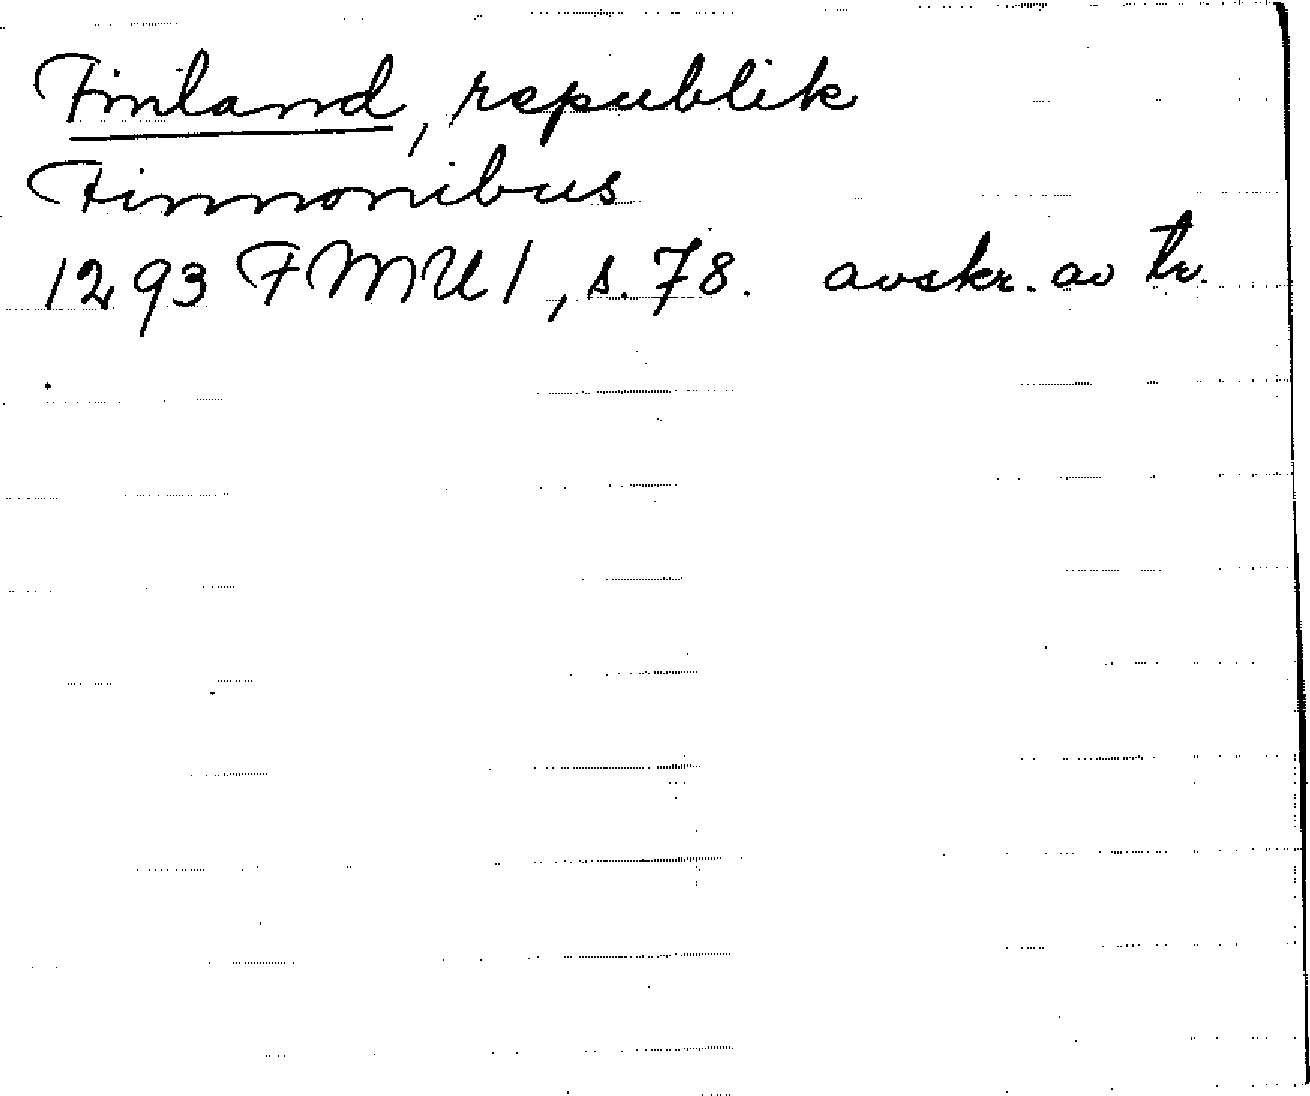 Finland, republik
Finnonibus
1293 FMU 1, s. 78. avskr. av tr.